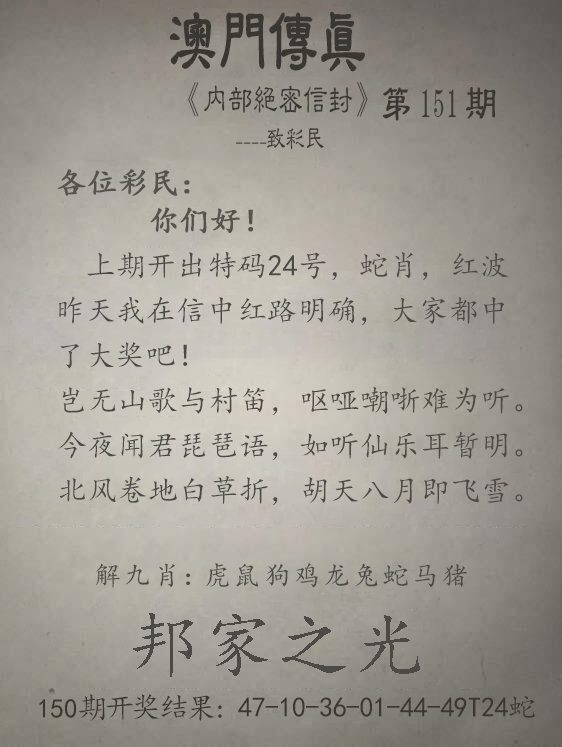 澳門傳真
《内部絕密信封》第151期
----致彩民
各位彩民：
你们好！
上期开出特码24号，蛇肖，红波
昨天我在信中红路明确，大家都中
了大奖吧！
岂无山歌与村笛，呕哑嘲哳难为听。
今夜闻君琵琶语，如听仙乐耳暂明。
北风卷地白草折，胡天八月即飞雪。
解九肖：虎鼠狗鸡龙兔蛇马猪
邦家之光
150期开奖结果：47-10-36-01-44-49T24蛇